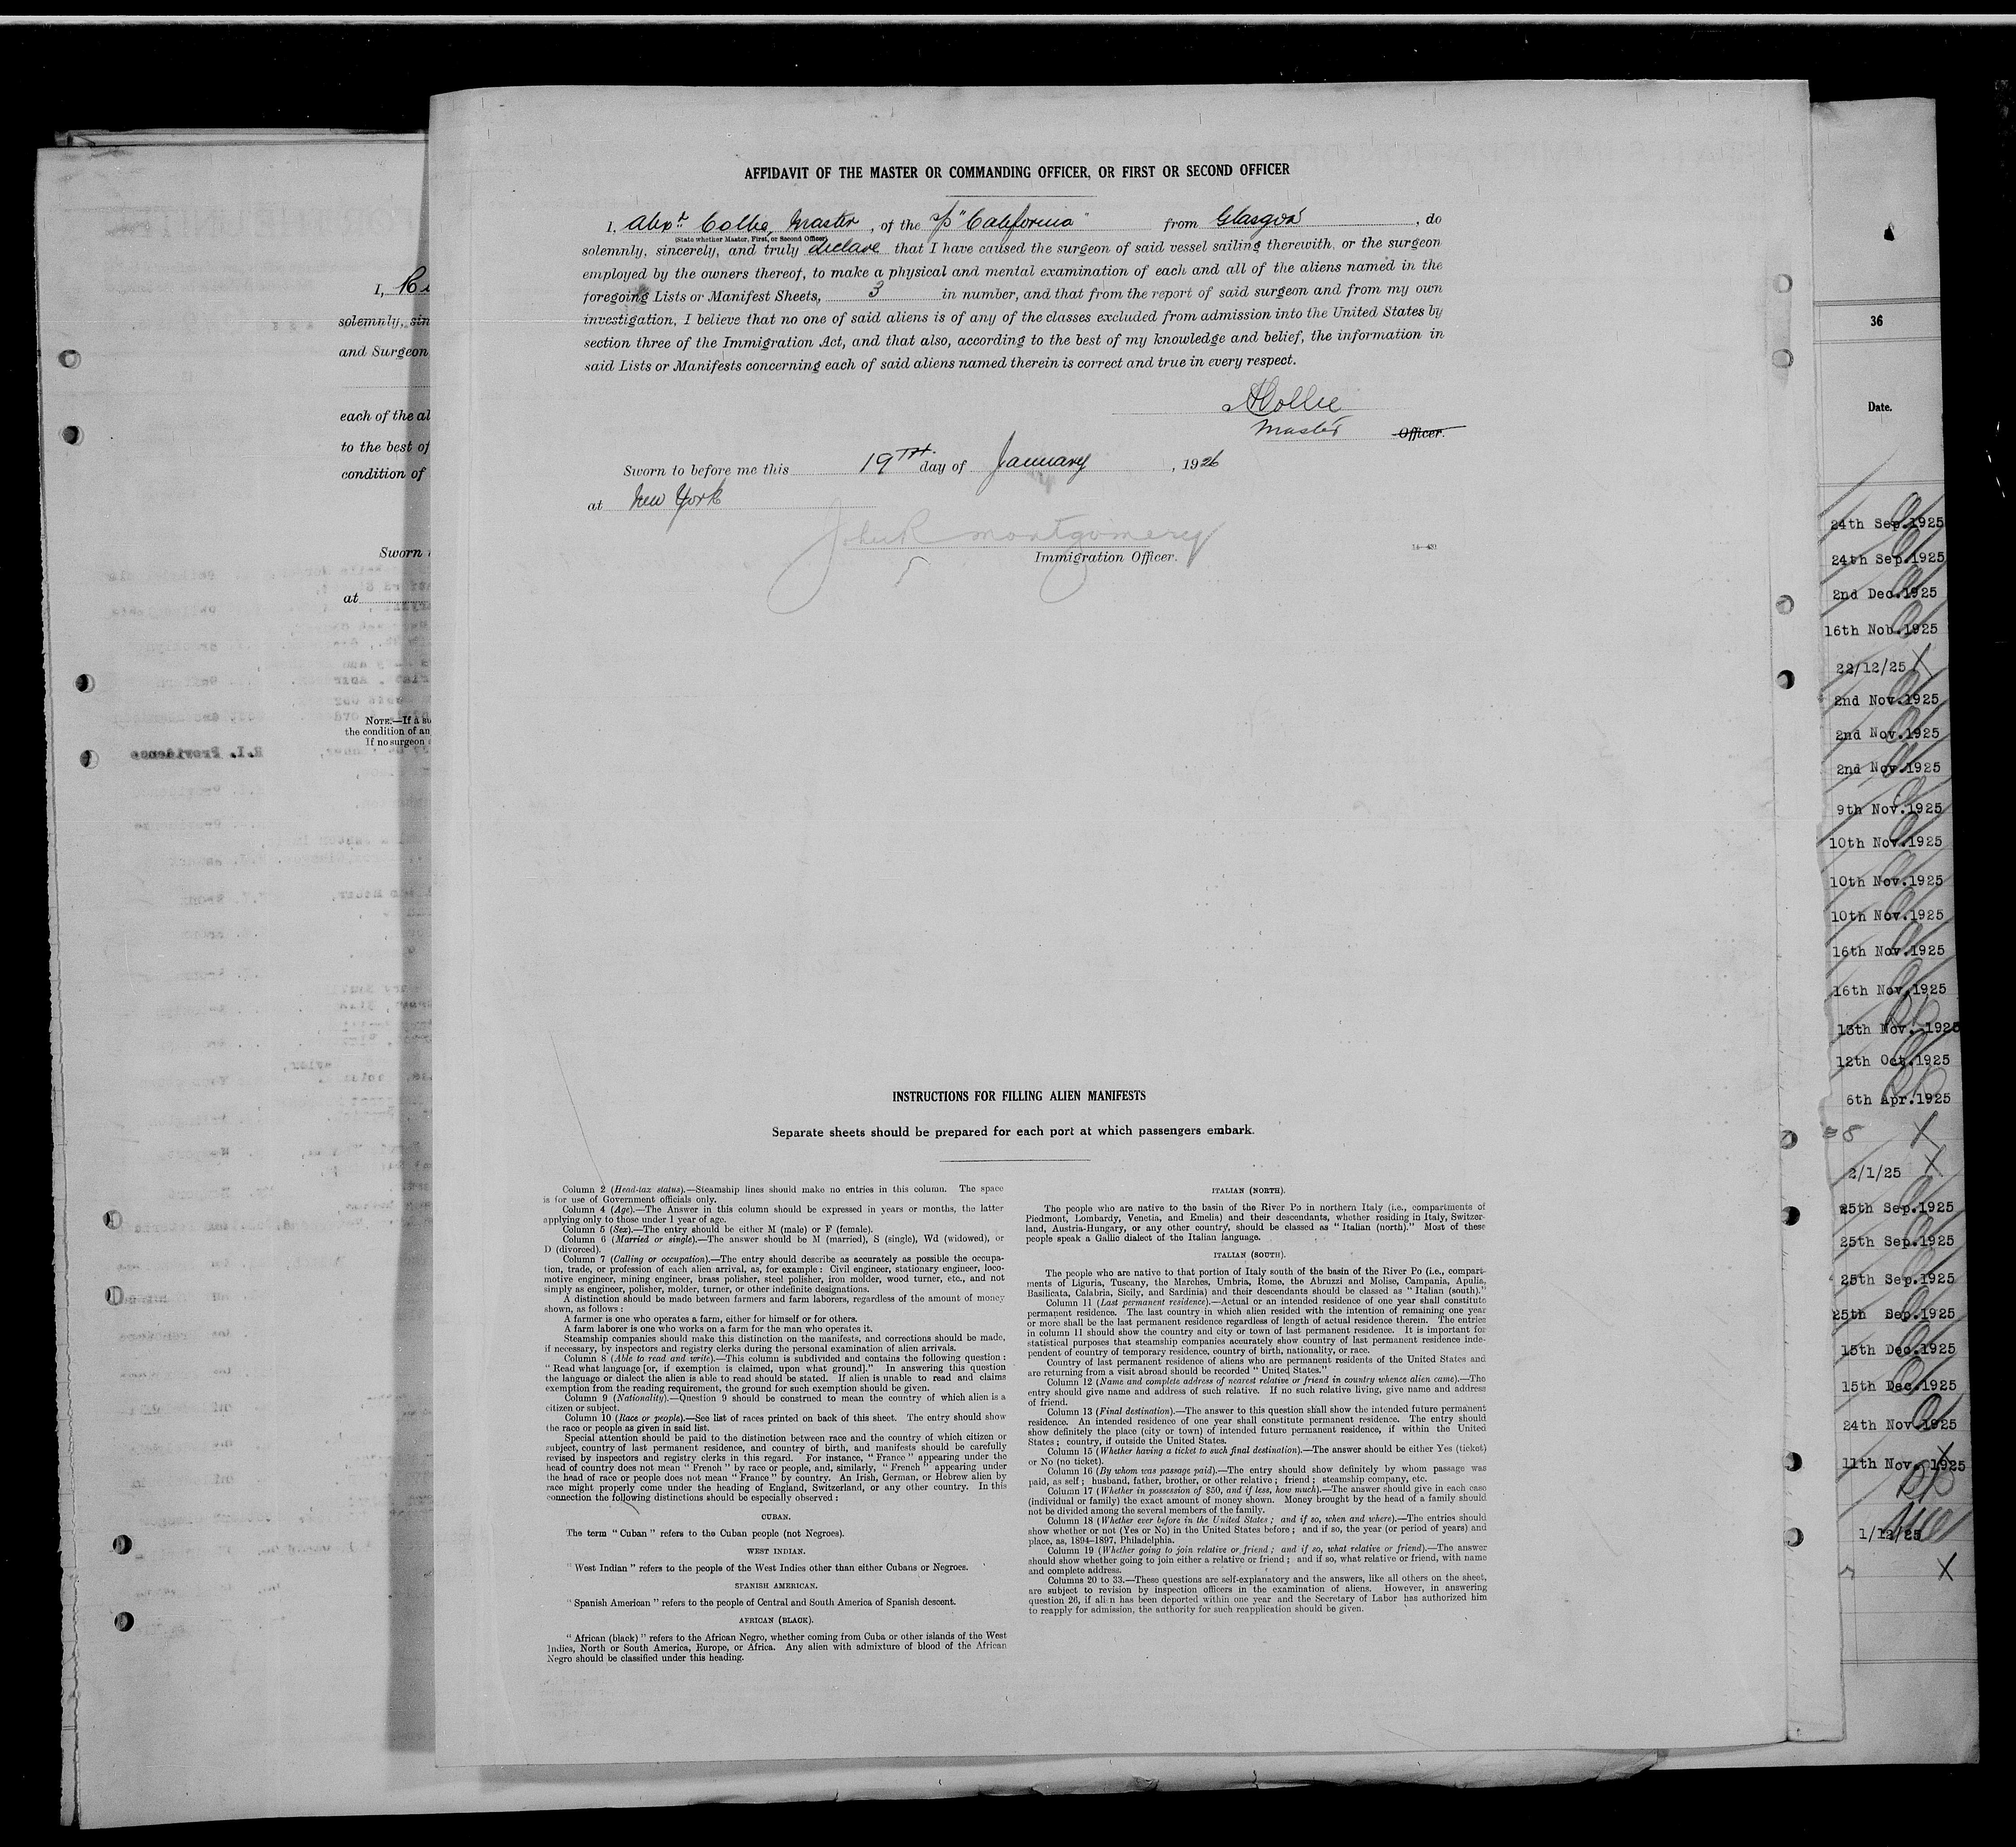 AFFIDAVIT OF THE MASTER OR COMMANDING OFFICER, OR FIRST OR SECOND OFFICER
I, Alexr. Collie, Master, of the S/S "California" from Glasgow, do
(State whether Master, First, or Second Officer)
solemnly, sincerely, and truly declare that I have caused the surgeon of said vessel sailing therewith, or the surgeon
employed by the owners thereof, to make a physical and mental examination of each and all of the aliens named in the
foregoing Lists or Manifest Sheets, 3 in number, and that from the report of said surgeon and from my own
investigation, I believe that no one of said aliens is of any of the classes excluded from admission into the United States by
section three of the Immigration Act, and that also, according to the best of my knowledge and belief, the information in
said Lists or Manifests concerning each of said aliens named therein is correct and true in every respect.
A Collie
Master Officer.
Sworn to before me this 19TH day of January, 1926
at New York
John R Montgomery
Immigration Officer.
INSTRUCTIONS FOR FILLING ALIEN MANIFESTS
Separate sheets should be prepared for each port at which passengers embark.
Column 2 (Head-tax status).—Steamship lines should make no entries in this column. The space
is for use of Government officials only.
Column 4 (Age).—The Answer in this column should be expressed in years or months, the latter
applying only to those under 1 year of age.
Column 5 (Sex).—The entry should be either M (male) or F (female).
Column 6 (Married or single).—The answer should be M (married), S (single), Wd (widowed), or
D (divorced).
Column 7 (Calling or occupation).—The entry should describe as accurately as possible the occupa-
tion, trade, or profession of each alien arrival, as, for example: Civil engineer, stationary engineer, loco-
motive engineer, mining engineer, brass polisher, steel polisher, iron molder, wood turner, etc., and not
simply as engineer, polisher, molder, turner, or other indefinite designations.
A distinction should be made between farmers and farm laborers, regardless of the amount of money
shown, as follows:
A farmer is one who operates a farm, either for himself or for others.
A farm laborer is one who works on a farm for the man who operates it.
Steamship companies should make this distinction on the manifests, and corrections should be made,
if necessary, by inspectors and registry clerks during the personal examination of alien arrivals.
Column 8 (Able to read and write).—This column is subdivided and contains the following question:
"Read what language [or, if exemption is claimed, upon what ground]." In answering this question
the language or dialect the alien is able to read should be stated. If alien is unable to read and claims
exemption from the reading requirement, the ground for such exemption should be given.
Column 9 (Nationality).—Question 9 should be construed to mean the country of which alien is a
citizen or subject.
Column 10 (Race or people).—See list of races printed on back of this sheet. The entry should show
the race or people as given in said list.
Special attention should be paid to the distinction between race and the country of which citizen or
subject, country of last permanent residence, and country of birth, and manifests should be carefully
revised by inspectors and registry clerks in this regard. For instance, "France" appearing under the
head of country does not mean "French" by race or people, and, similarly, "French" appearing under
the head of race or people does not mean "France" by country. An Irish, German, or Hebrew alien by
race might properly come under the heading of England, Switzerland, or any other country. In this
connection the following distinctions should be especially observed:
CUBAN.
The term "Cuban" refers to the Cuban people (not Negroes).
WEST INDIAN.
"West Indian" refers to the people of the West Indies other than either Cubans or Negroes.
SPANISH AMERICAN.
"Spanish American" refers to the people of Central and South America of Spanish descent.
AFRICAN (BLACK).
"African (black)" refers to the African Negro, whether coming from Cuba or other islands of the West
Indies, North or South America, Europe, or Africa. Any alien with admixture of blood of the African
Negro should be classified under this heading.
ITALIAN (NORTH).
The people who are native to the basin of the River Po in northern Italy (i.e., compartments of
Piedmont, Lombardy, Venetia, and Emelia) and their descendants, whether residing in Italy, Switzer-
land, Austria-Hungary, or any other country, should be classed as "Italian (north)." Most of these
people speak a Gallic dialect of the Italian language.
ITALIAN (SOUTH).
The people who are native to that portion of Italy south of the basin of the River Po (i.e., compart-
ments of Liguria, Tuscany, the Marches, Umbria, Rome, the Abruzzi and Molise, Campania, Apulia,
Basilicata, Calabria, Sicily, and Sardinia) and their descendants should be classed as "Italian (south)."
Column 11 (Last permanent residence).—Actual or an intended residence of one year shall constitute
permanent residence. The last country in which alien resided with the intention of remaining one year
or more shall be the last permanent residence regardless of length of actual residence therein. The entries
in column 11 should show the country and city or town of last permanent residence. It is important for
statistical purposes that steamship companies accurately show country of last permanent residence inde-
pendent of country of temporary residence, country of birth, nationality, or race.
Country of last permanent residence of aliens who are permanent residents of the United States and
are returning from a visit abroad should be recorded "United States."
Column 12 (Name and complete address of nearest relative or friend in country whence alien came).—The
entry should give name and address of such relative. If no such relative living, give name and address
of friend.
Column 13 (Final destination).—The answer to this question shall show the intended future permanent
residence. An intended residence of one year shall constitute permanent residence. The entry should
show definitely the place (city or town) of intended future permanent residence, if within the United
States; country, if outside the United States.
Column 15 (Whether having a ticket to such final destination).—The answer should be either Yes (ticket)
or No (no ticket).
Column 16 (By whom was passage paid).—The entry should show definitely by whom passage was
paid, as self; husband, father, brother, or other relative; friend; steamship company, etc.
Column 17 (Whether in possession of $50, and if less, how much).—The answer should give in each case
(individual or family) the exact amount of money shown. Money brought by the head of a family should
not be divided among the several members of the family.
Column 18 (Whether ever before in the United States; and if so, when and where).—The entries should
show whether or not (Yes or No) in the United States before; and if so, the year (or period of years) and
place, as, 1894-1897, Philadelphia.
Column 19 (Whether going to join relative or friend; and if so, what relative or friend).—The answer
should show whether going to join either a relative or friend; and if so, what relative or friend, with name
and complete address.
Columns 20 to 33.—These questions are self-explanatory and the answers, like all others on the sheet,
are subject to revision by inspection officers in the examination of aliens. However, in answering
question 26, if alien has been deported within one year and the Secretary of Labor has authorized him
to reapply for admission, the authority for such reapplication should be given.
I,
solemnly, sin
and Surgeon
each of the al
to the best of
condition of
Sworn
at
NOTE.—If a su
the condition of an
If no surgeon
R.I. Providence
36
Date.
24th Sep.1925
24th Sep.1925
2nd Dec.1925
16th Nob.1925
22/12/25 X
2nd Nov.1925
2nd Nov.1925
2nd Nov.1925
9th Nov.1925
10th Nov.1925
10th Nov.1925
10th Nov.1925
16th Nov.1925
16th Nov.1925
13th Nov.1925
12th Oct.1925
6th Apr.1925
8 X
2/1/25 X
25th Sep.1925
25th Sep.1925
25th Sep.1925
25th Sep.1925
15th Dec.1925
15th Dec.1925
24th Nov.1925
11th Nov.1925
1/12/25
X